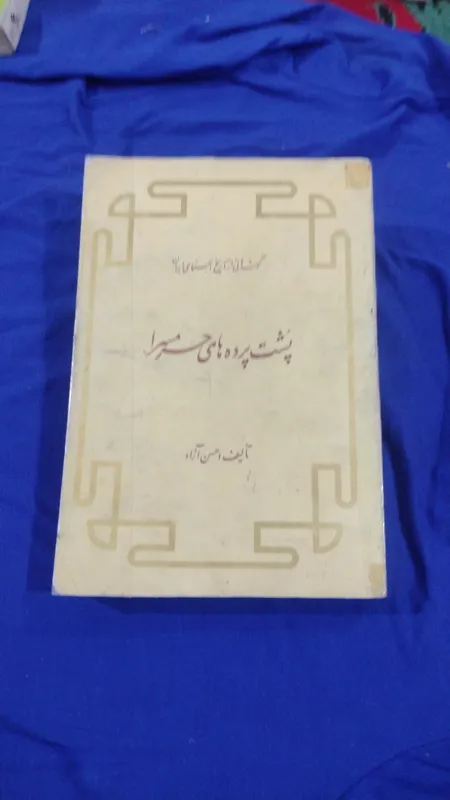 گوشه‌ای از تاریخ اجتماعی ایران
پشت پرده های حرمسرا
تألیف: حسن آزاد